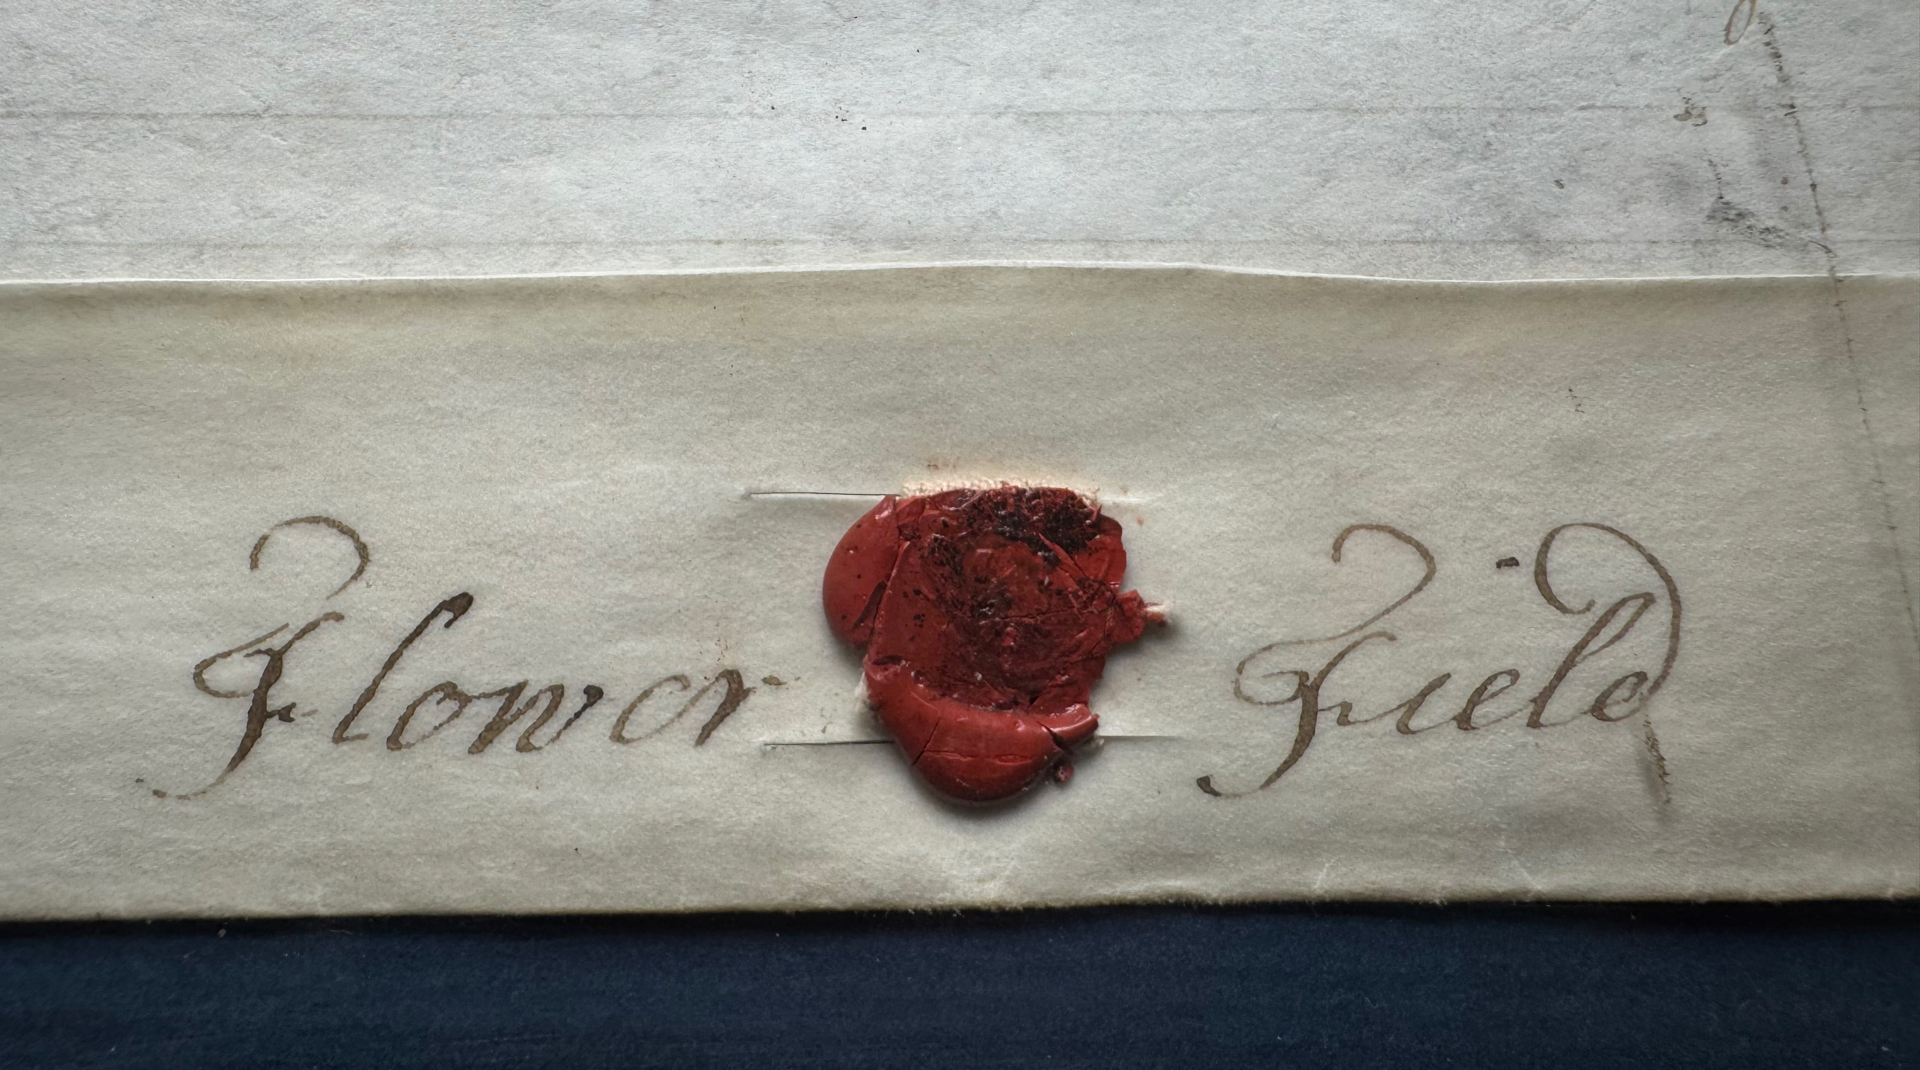 Flower Field